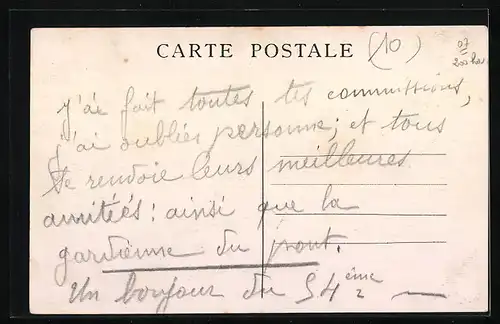 CARTE POSTALE (10)
07
J'ai fait toutes tes commissions,
j'ai oublier personne; et tous
te renvoie leurs meilleures
amitéés: ainsi que la
gardienne du pont.
Un bonjour du 54ème
2